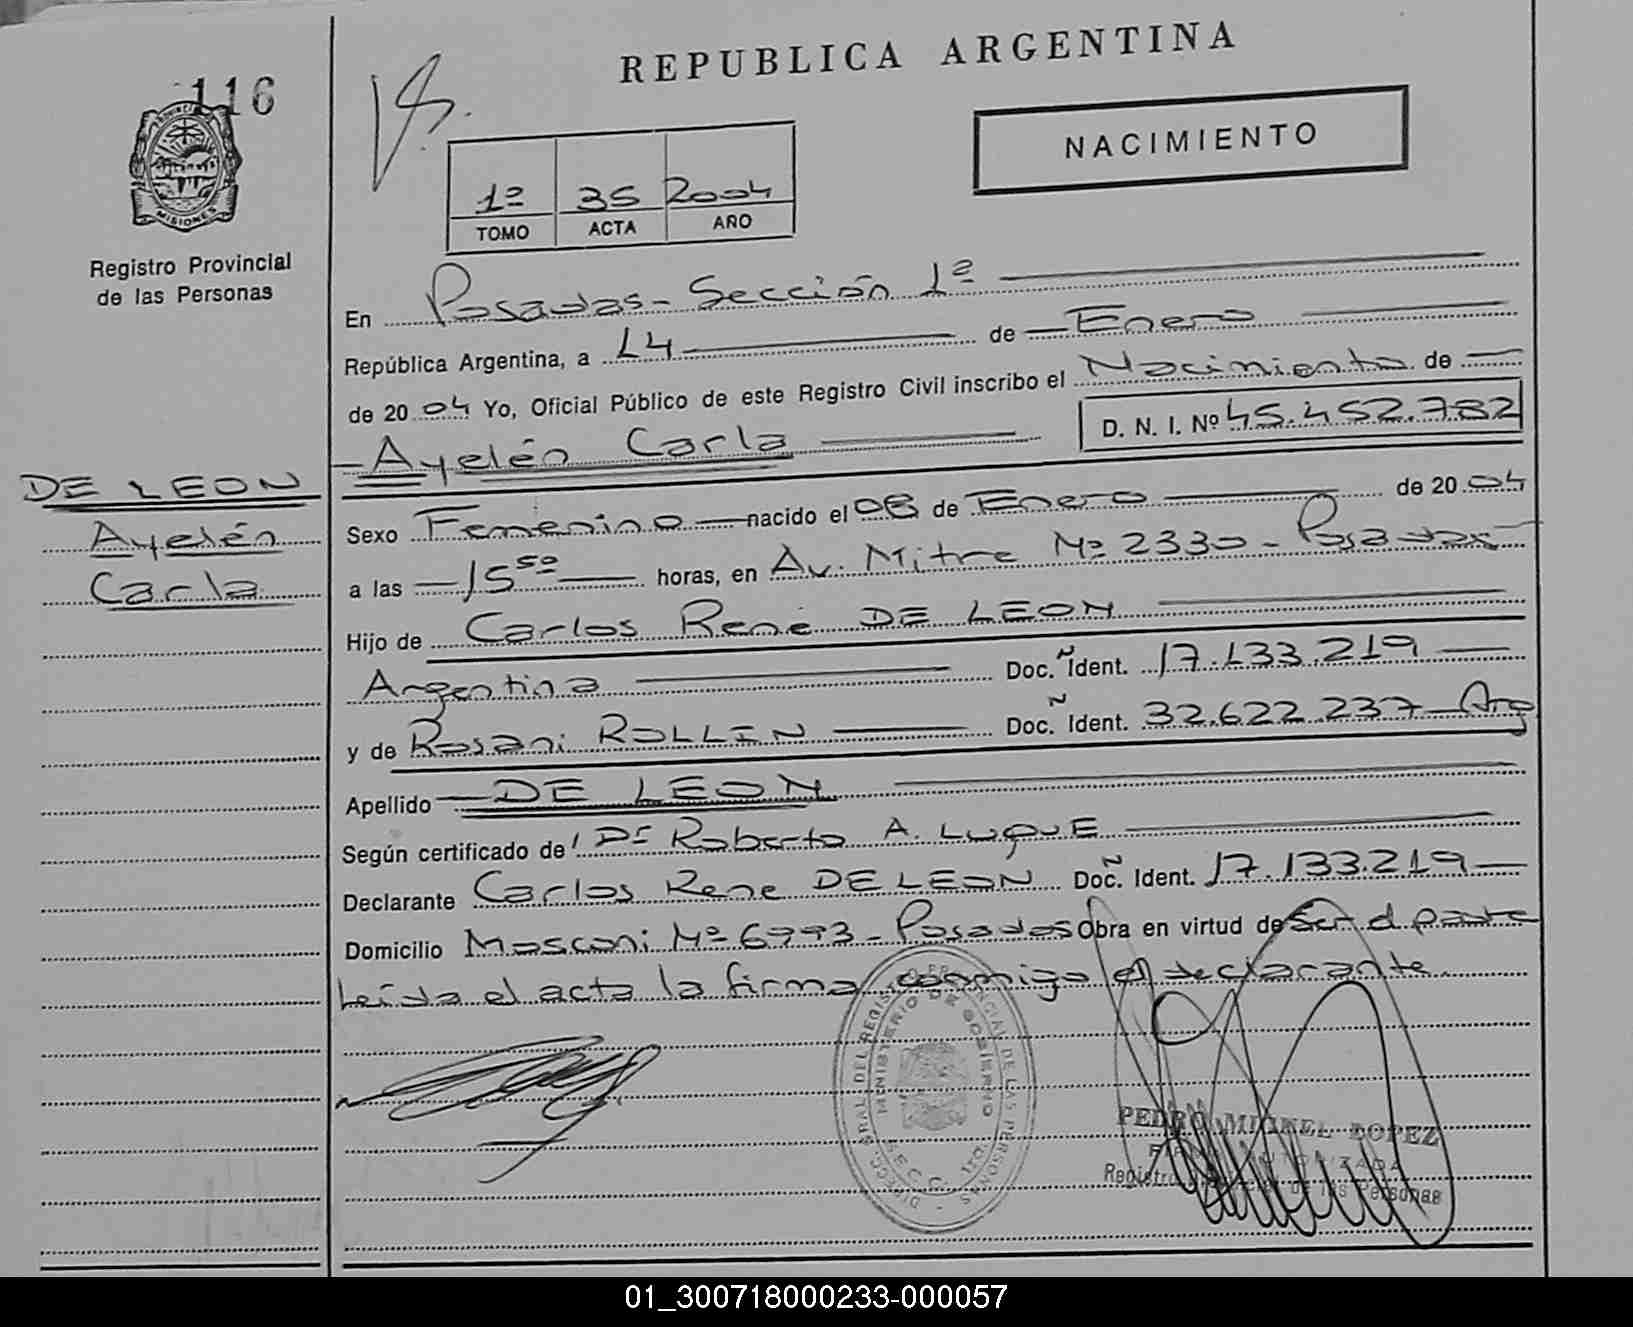 REPUBLICA ARGENTINA
116
NACIMIENTO
PROVINCIA
MISIONES
1º 35 2004
TOMO ACTA AÑO
Registro Provincial
de las Personas
En Posadas - Sección 1ª
República Argentina, a 14 de Enero
de 2004 Yo, Oficial Público de este Registro Civil inscribo el Nacimiento de
Ayelén Carla D. N. I. Nº 45.452.782
DE LEON
Ayelén
Carla
Sexo Femenino nacido el 08 de Enero de 2004
a las 15 50 horas, en Av. Mitre Nº 2330 - Posadas
Hijo de Carlos René DE LEON
Argentina Doc. Ident. 17.133.219
y de Rosani ROLLIN Doc. Ident. 32.622.237 Arg
Apellido DE LEON
Según certificado de Dr Roberto A. LUQUE
Declarante Carlos Rene DE LEON Doc. Ident. 17.133.219
Domicilio Mosconi Nº 6773 - Posadas Obra en virtud de Ser el padre
Leída el acta la firma conmigo el declarante
DIRECC. GRAL. DEL REGISTRO PROVINCIAL DE LAS PERSONAS
MINISTERIO DE GOBIERNO
SECC.
PEDRO MIGUEL LOPEZ
FIRMA AUTORIZADA
Registro Provincial de las Personas
01_300718000233-000057